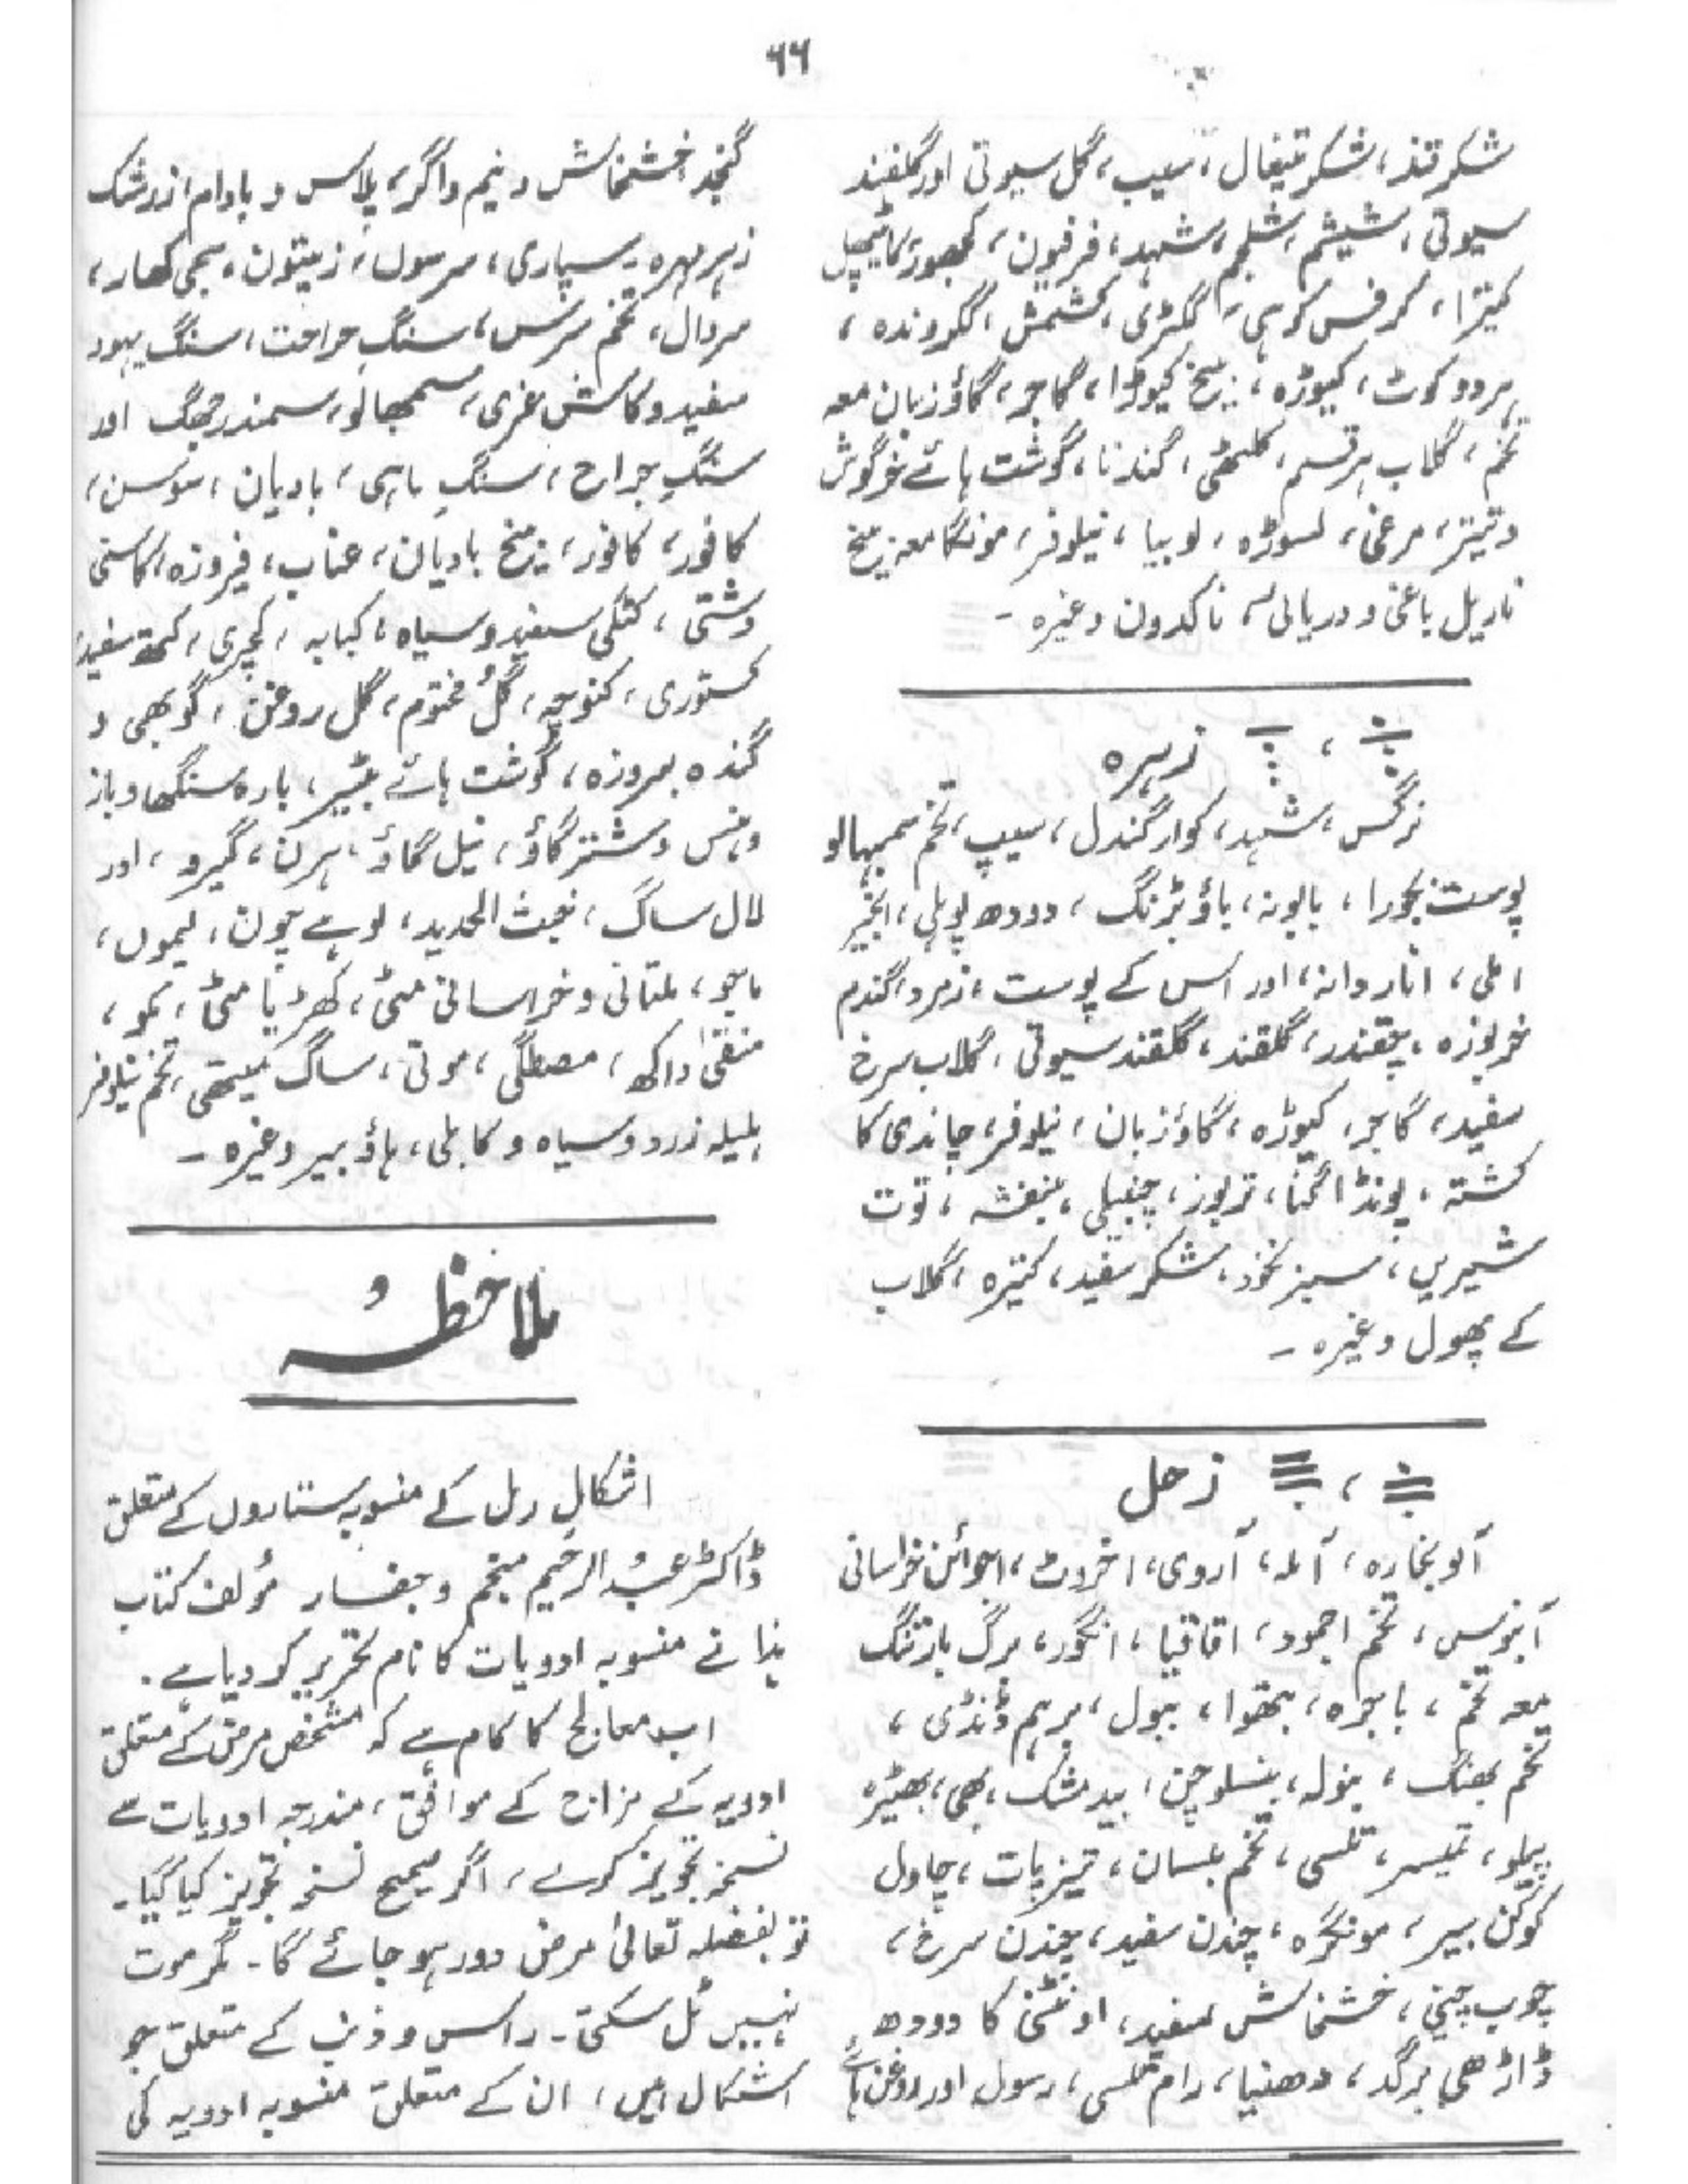 ۶۶
شکر قند، شکر تیغال، سیب، گل سیوتی اور گلقند
سیوتی، شیشم، شلجم، شہد، فرفیون، کھجور، کائپھل
کتیرا، کرفس کوہی، ککڑی، کشمش، ککروندہ،
ہر دو کوٹ، کیوڑہ، بیخ کیوڑا، گاجر، گاؤزبان معہ
تخم، گلاب ہر قسم، کلتھی، گندنا، گوشت ہائے خرگوش
و تیتر، مرغی، لسوڑہ، لوبیا، نیلوفر، مونگا معہ بیخ
ناریل باغی و دریائی، ناگدون وغیرہ ۔
، زہرہ
نرگس، شہد، کوار گندل، سیپ، تخم سمبہالو
پوست بجورا، بابونہ، باؤبڑنگ، دودھ پوہلی، انجیر
املی، انار دانہ، اور اس کے پوست، زمرد، گندم
خربوزہ، چقندر، گلقند، گلقند سیوتی، گلاب سرخ
سفید، گاجر، کیوڑہ، گاؤزبان، نیلوفر، چاندی کا
کشتہ، پونڈا گنا، تربوز، چنبیلی، بنفشہ، توت
شیریں، سبز نخود، شکر سفید، کتیرہ، گلاب
کے پھول وغیرہ ۔
، زحل
آلو بخارہ، آملہ، آروی، اخروٹ، اجوائن خراسانی
آبنوس، تخم اجمود، اقاقیا، انگور، برگ بارتنگ
معہ تخم، باجرہ، بتھوا، ببول، برہم ڈنڈی،
تخم بھنگ، بنولہ، بنسلوچن، بید مشک، بھی، بھیڑہ
پیلو، تیسر، تلسی، تخم بلسان، تیزپات، چاول
کوکن بیر، مونگرہ، چندن سفید، چندن سرخ،
چوب چینی، خشخاش سفید، اونٹنی کا دودھ
ڈاڑھی برگد، دھنیا، رام تلسی، رسول اور روغن ہائے
گنجد خشخاش و نیم و اگر، پلاس و بادام، زرشک
زہر مہرہ ۔ سپاری، سرسوں، زیتون، سجی کھار،
سردال، تخم سرس، سنگ جراحت، سنگ یہود
سفید و کاشغری، سمبھالو، سمندر جھگ اور
سنگِ جراح، سنگِ ماہی، بادیان، سوسن،
کافور، کافور، بیخ بادیان، عناب، فیروزہ، کاسنی
دشتی، کٹکی سفید و سیاہ، کبابہ، کچری، کتھ سفید،
کستوری، کنوچہ، گُل مختوم، گل روغن، گوبھی و
گندہ بہروزہ، گوشت ہائے بٹیر، بارہ سنگھا و باز
و ہنس و شتر گاؤ، نیل گاؤ، ہرن، گیرو، اور
لال ساگ، خبث الحدید، لوہے چون، لیموں،
ماجو، ملتانی و خراسانی مٹی، کھڑیا مٹی، مکو،
منقیٰ داکھ، مصطگی، موتی، ساگ میتھی، تخم نیلوفر
ہلیلہ زرد و سیاہ و کابلی، ہاؤ بیر وغیرہ ۔
ملاحظہ
اشکال رمل کے منسوبہ ستاروں کے متعلق
ڈاکٹر عبدُ الرحیم منجم و جفار مؤلف کتاب
ہذا نے منسوبہ ادویات کا نام تحریر کر دیا ہے ۔
اب معالج کا کام ہے کہ مشخص مرض کے متعلق
ادویہ کے مزاج کے موافق، مندرجہ ادویات سے
نسخہ تجویز کرے، اگر صحیح نسخہ تجویز کیا گیا ۔
تو بفضلہ تعالیٰ مرض دور ہو جائے گا ۔ مگر موت
نہیں ٹل سکتی ۔ راس و ذنب کے متعلق جو
اشکال ہیں، ان کے متعلق منسوبہ ادویہ کی